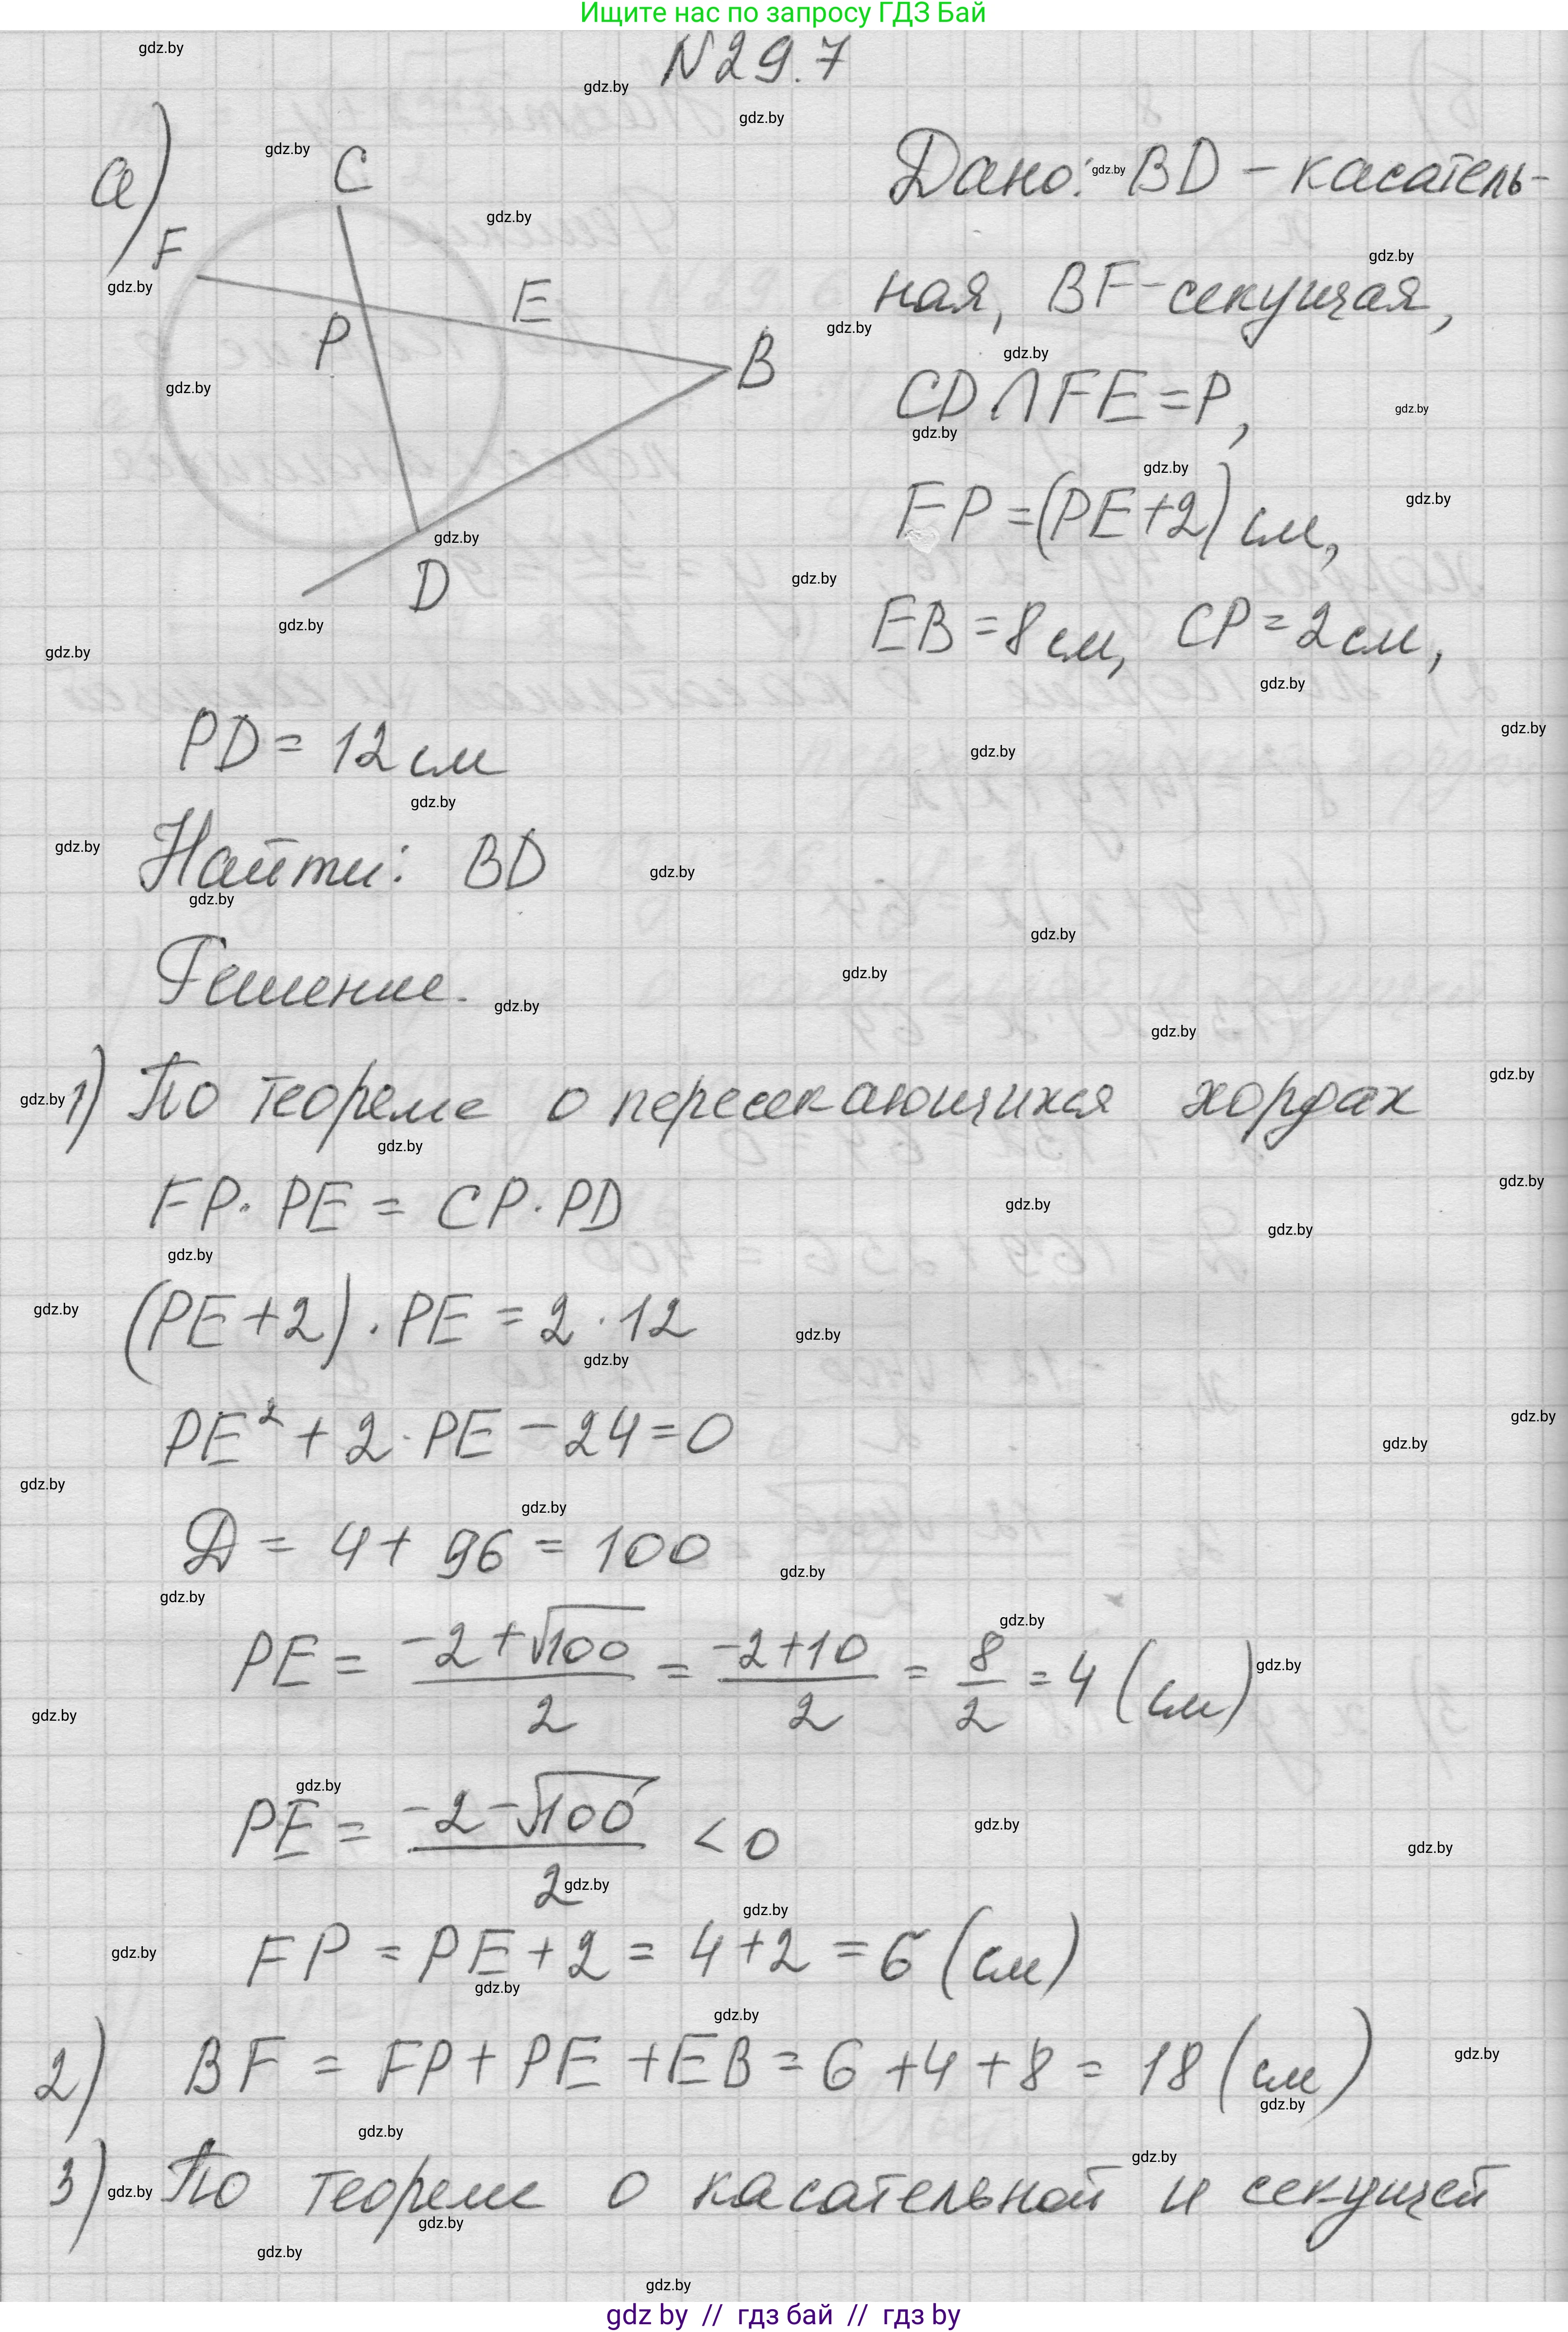 Ищите нас по запросу ГДЗ Бай
N 29.7
а)
C
F
E
P
B
D
Дано: BD – касатель-
ная, BF – секущая,
CD ∩ FE = P,
FP = (PE + 2) см,
EB = 8 см, CP = 2 см,
PD = 12 см
Найти: BD
Решение.
1) По теореме о пересекающихся хордах
FP · PE = CP · PD
(PE + 2) · PE = 2 · 12
PE² + 2 · PE – 24 = 0
D = 4 + 96 = 100
PE = (-2 + √100)/2 = (-2 + 10)/2 = 8/2 = 4 (см)
PE = (-2 - √100)/2 < 0
FP = PE + 2 = 4 + 2 = 6 (см)
2) BF = FP + PE + EB = 6 + 4 + 8 = 18 (см)
3) По теореме о касательной и секущей
gdz by // гдз бай // гдз by